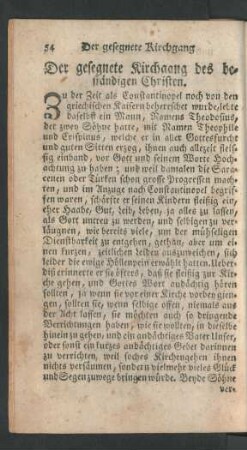 54 Der gesegnete Kirchgang
Der gesegnete Kirchgang des be-
ständigen Christen.
Zu der Zeit als Constantinopel noch von den
griechischen Kaisern beherrschet wurde, lebte
daselbst ein Mann, Namens Theodosius,
der zwey Söhne hatte, mit Namen Theophile
und Crispinus, welche er in aller Gottesfurcht
und guten Sitten erzog, ihnen auch allezeit fleis-
sig einband, vor Gott und seinem Worte Hoch-
achtung zu haben; und weil damalen die Sarace-
cenen oder Türken schon große Progressen mach-
ten, und im Anzuge nach Constantinopel begrif-
fen waren, schärfte er seinen Kindern fleißig ein,
eher Haabe, Gut, Leib, Leben, ja alles zu lassen,
als Gott untreu zu werden, und selbigen zu ver-
läugnen, wie bereits viele, um der mühseligen
Dienstbarkeit zu entgehen, gethan, aber um ei-
nen kurzen, zeitlichen Leiden auszuweichen, sich
leider die ewige Höllenpein erwählt hatten. Ueber-
dieß erinnerte er sie öfters, daß sie fleißig zur Kir-
che gehen, und Gottes Wort andächtig hören
sollten, ja wenn sie vor einer Kirche vorbey gien-
gen, sollten sie, wenn selbige offen, niemals aus
den Augen setzen, sie möchten auch so dringende
Verrichtungen haben, wie sie wollten, in dieselbe
hinein zu gehen, und ein andächtiges Vater Unser,
oder sonst ein kurzes andächtiges Gebet darinnen
zu verrichten, weil solches Kirchengehen ihnen
nichts versäumen, sondern vielmehr vieles Glück
und Segen zuwege bringen würde. Beyde Söhne
ver-